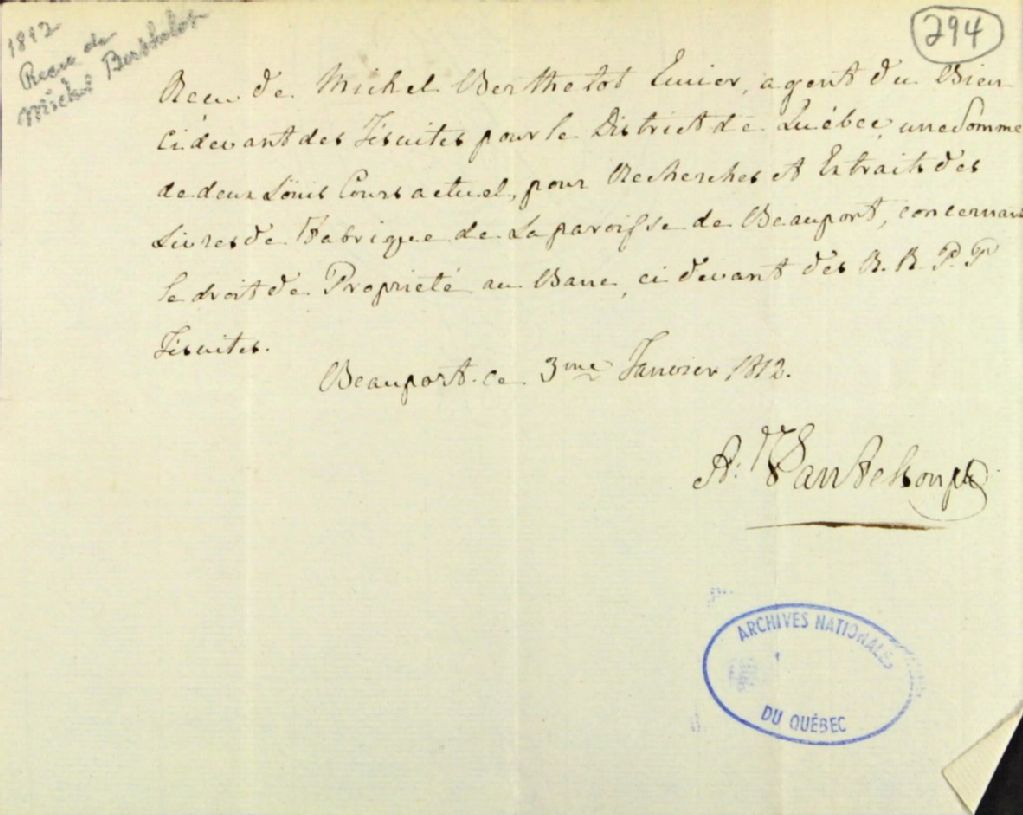 1812
Recu de
Michel Berthelot
294
Recu de Michel Berthelot Ecuier, agent du Bien
ci devant des Jésuites pour le District de Québec, une somme
de deux Louis Cours actuel, pour Recherches et Extraits des
Livres de Fabrique de La paroisse de Beauport, concernant
le droit de Propriété au Banc, ci devant des R. R. P. P
Jésuites.
Beauport. ce 3me Janvier 1812.
A:
ARCHIVES NATIONALES
DU QUÉBEC